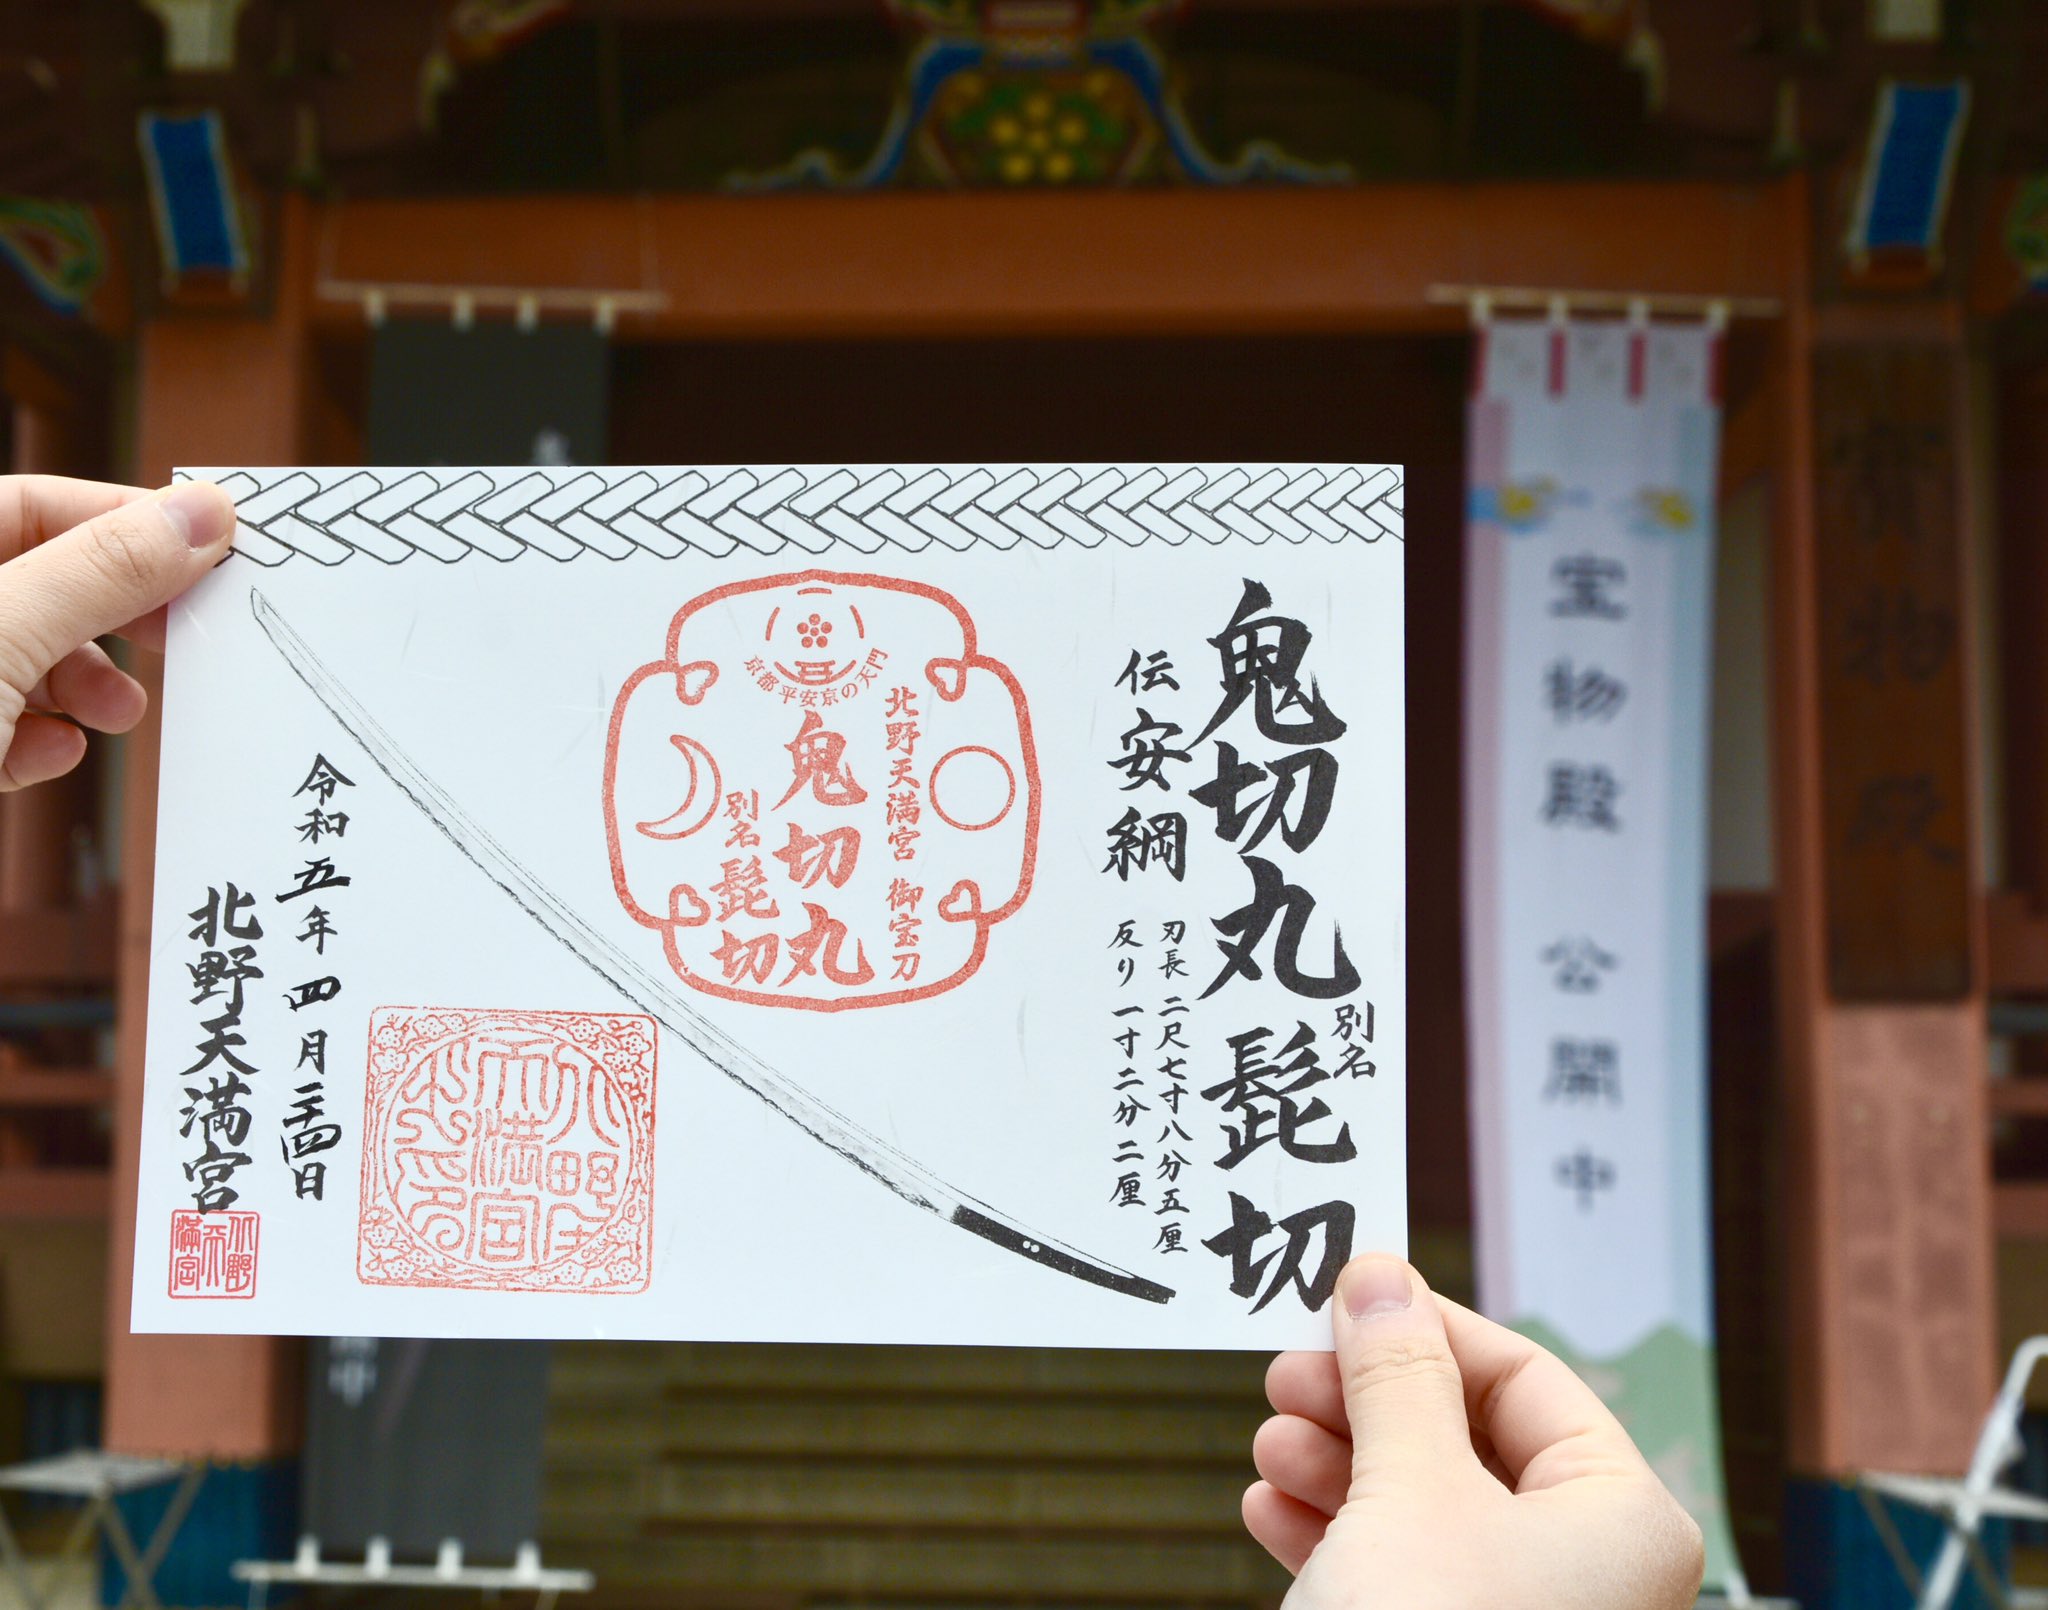 鬼切丸 別名 髭切
伝 安綱
刃長 二尺七寸八分五厘
反り 一寸二分二厘
京都 平安京の天門
北野天満宮 御宝刀
鬼切丸
別名 髭切
令和五年 四月二十四日
北野天満宮
北野天満宮
宝物殿 公開中
宝物殿